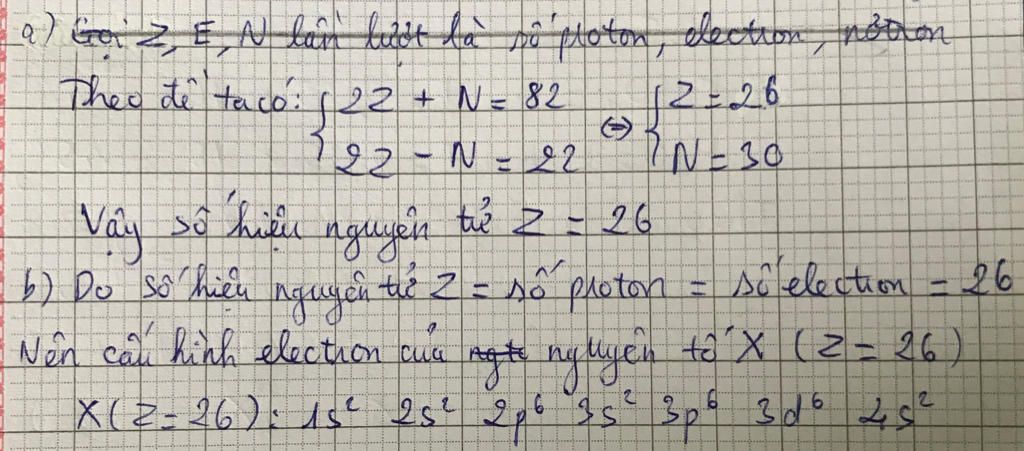 a) Gọi Z, E, N lần lượt là số proton, electron, nơtron
Theo đề ta có: { 2Z + N = 82 ⇔ { Z = 26
2Z - N = 22 N = 30
Vậy số hiệu nguyên tử Z = 26
b) Do số hiệu nguyên tử Z = số proton = số electron = 26
Nên cấu hình electron của ngtố nguyên tố X (Z = 26)
X (Z = 26): 1s² 2s² 2p⁶ 3s² 3p⁶ 3d⁶ 4s²